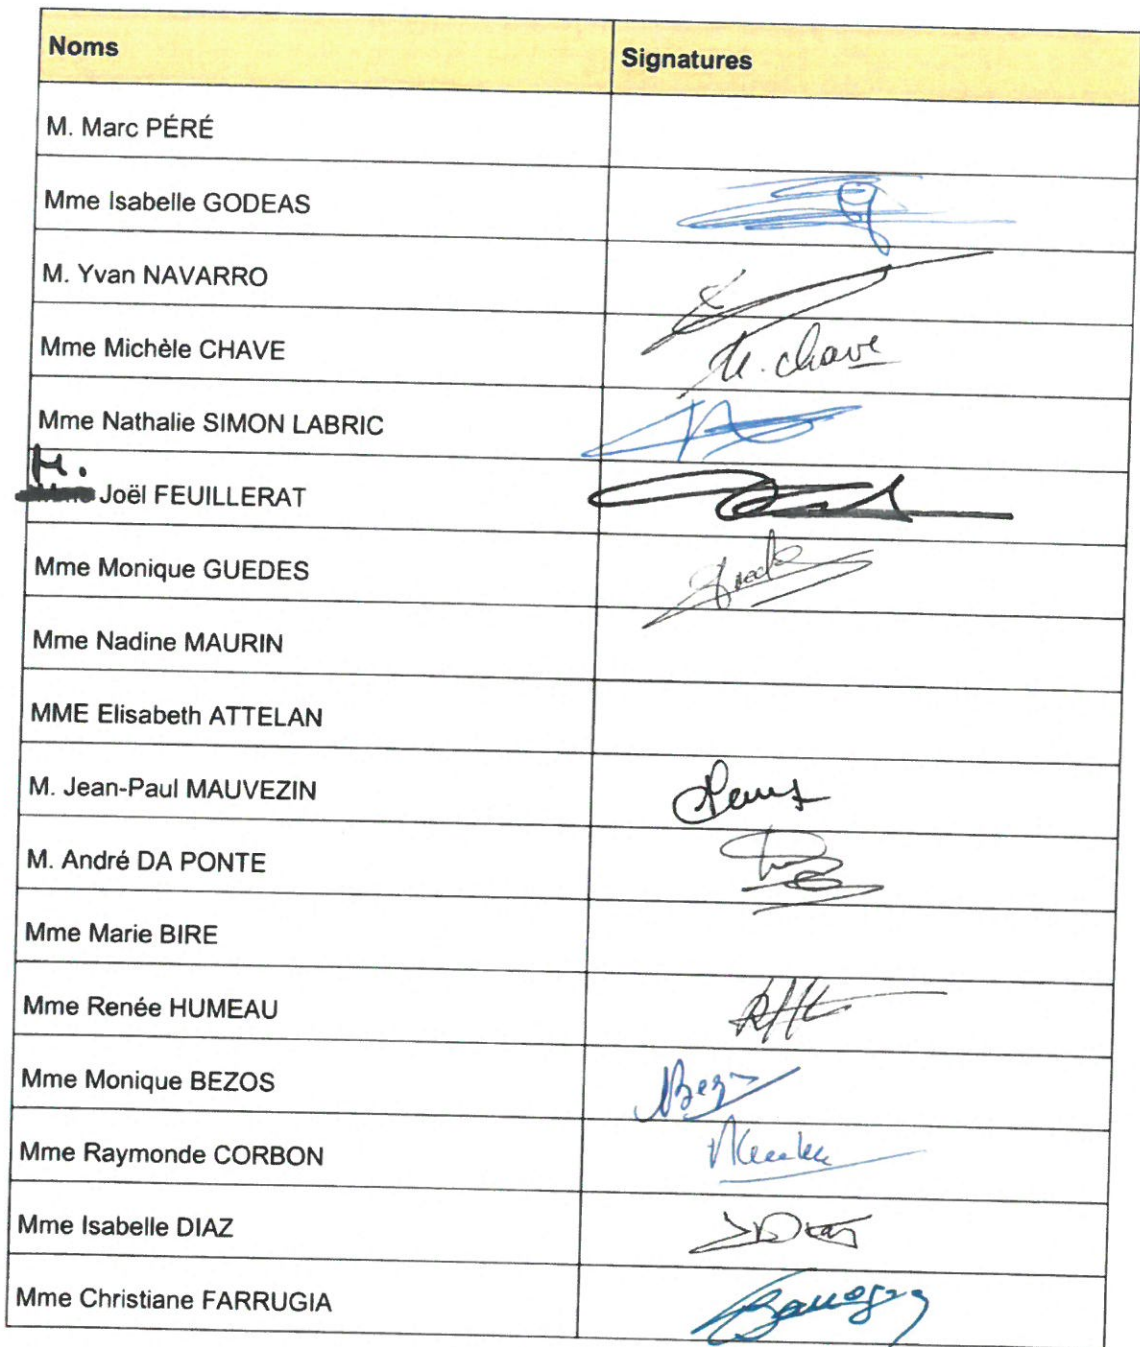 Noms Signatures
M. Marc PÉRÉ
Mme Isabelle GODEAS
M. Yvan NAVARRO
Mme Michèle CHAVE M. chave
Mme Nathalie SIMON LABRIC
M.
Joël FEUILLERAT
Mme Monique GUEDES
Mme Nadine MAURIN
MME Elisabeth ATTELAN
M. Jean-Paul MAUVEZIN
M. André DA PONTE
Mme Marie BIRE
Mme Renée HUMEAU
Mme Monique BEZOS
Mme Raymonde CORBON
Mme Isabelle DIAZ
Mme Christiane FARRUGIA